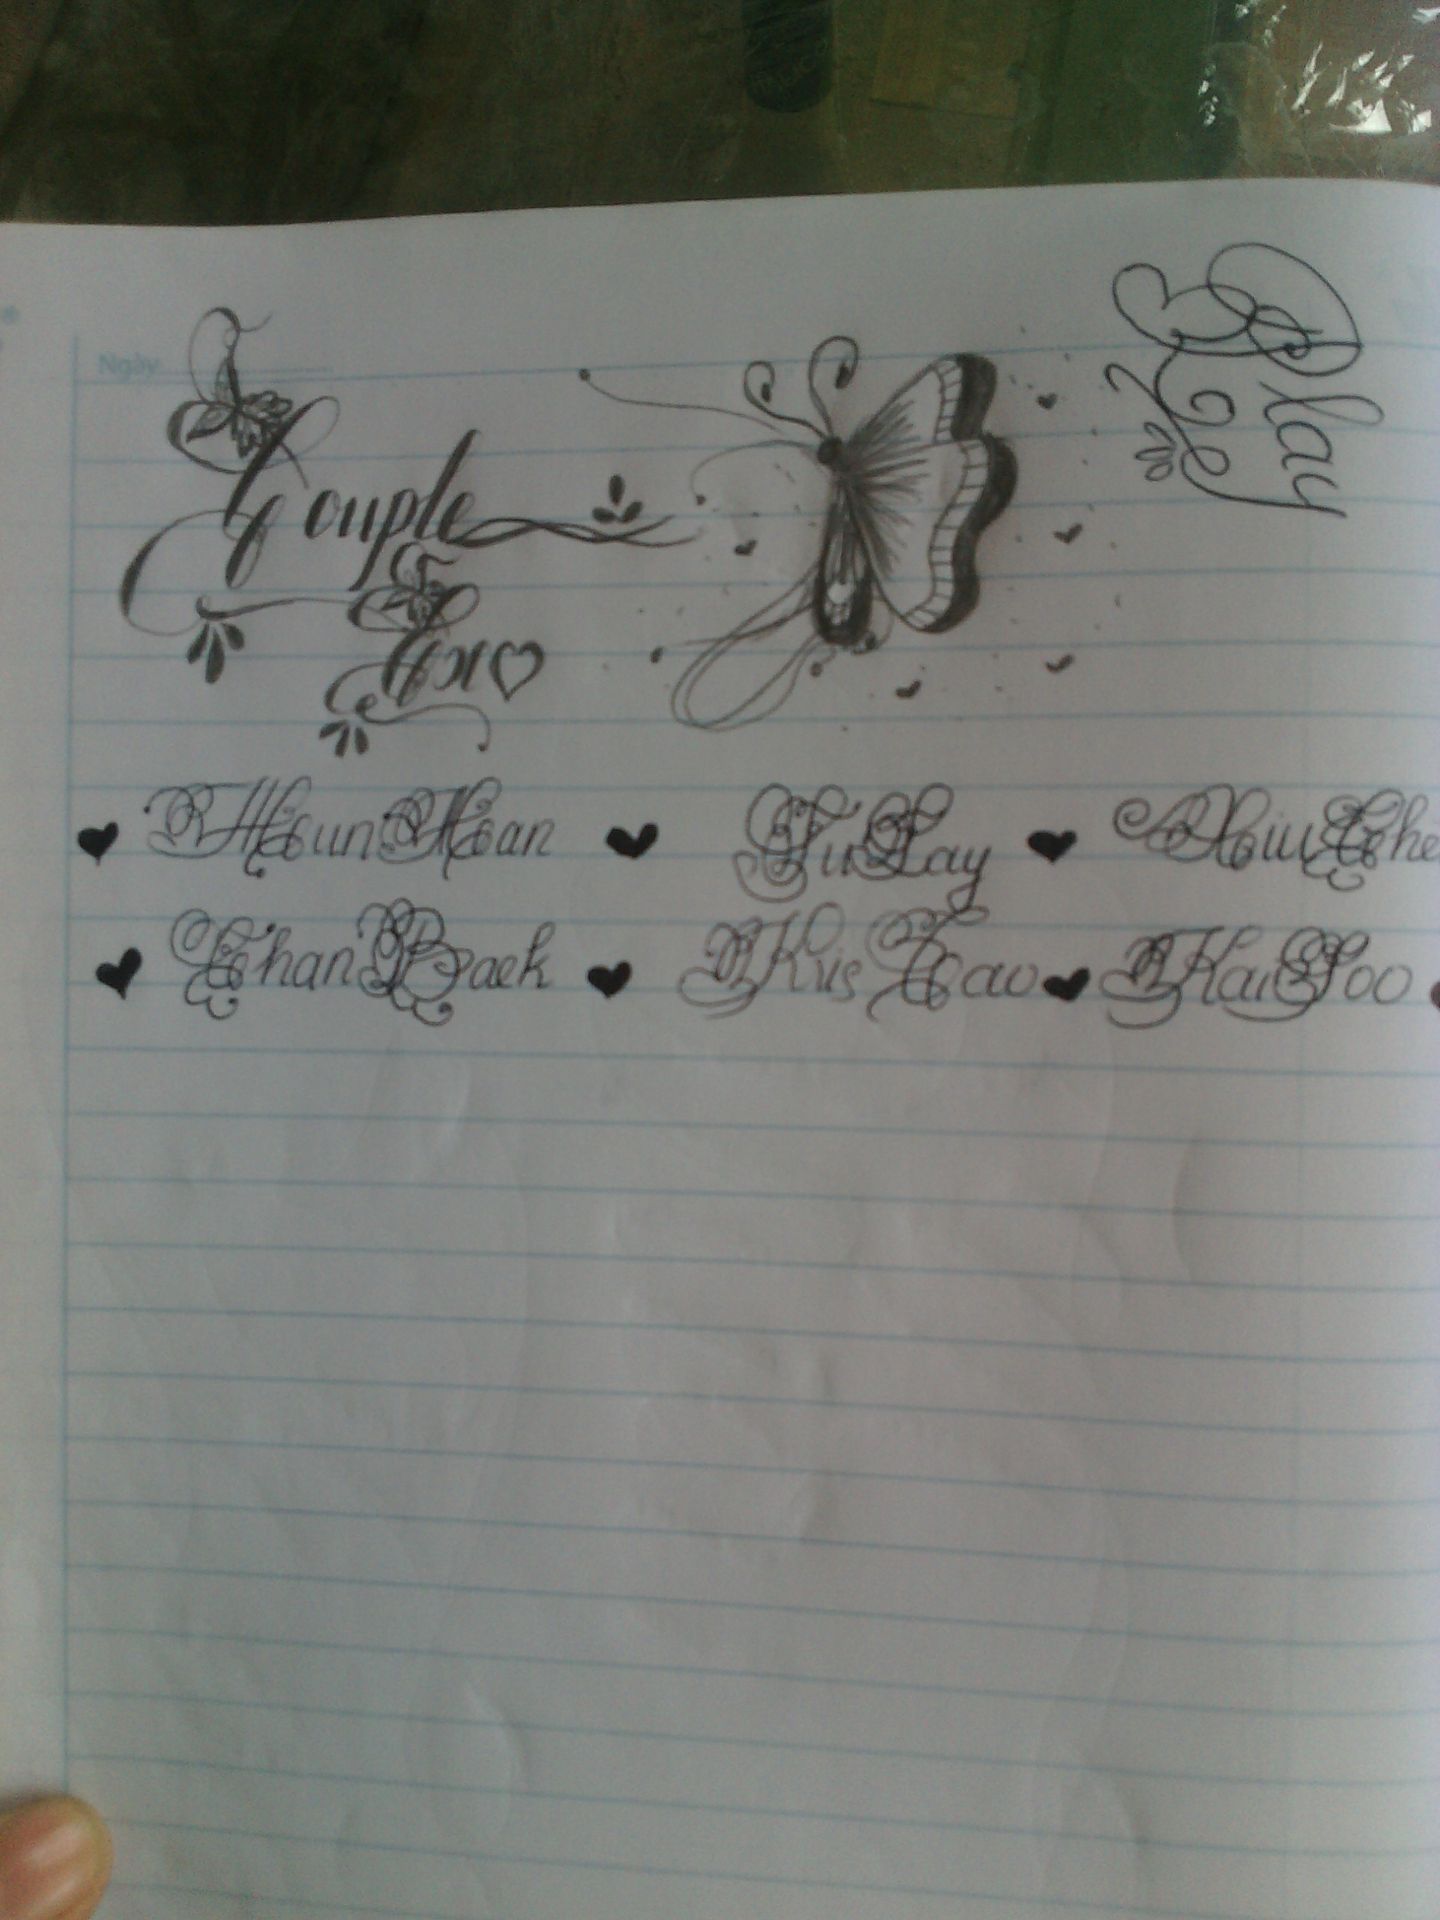 Ngày
Couple
Exo
Play
HunHan SuLay XiuChe
ChanBaek KrisTao KaiSoo